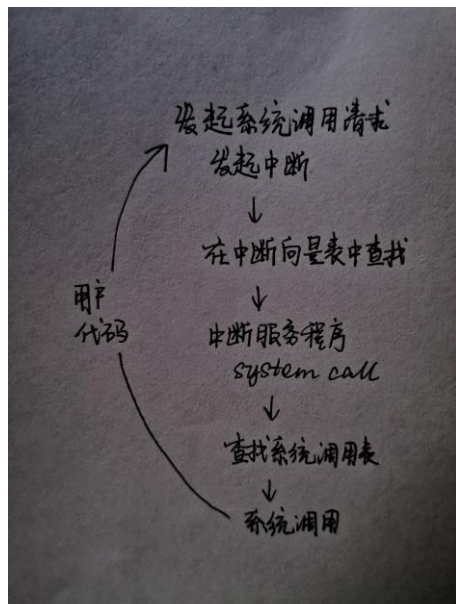 发起系统调用请求
发起中断
在中断向量表中查找
用户
代码
中断服务程序
system call
查找系统调用表
系统调用